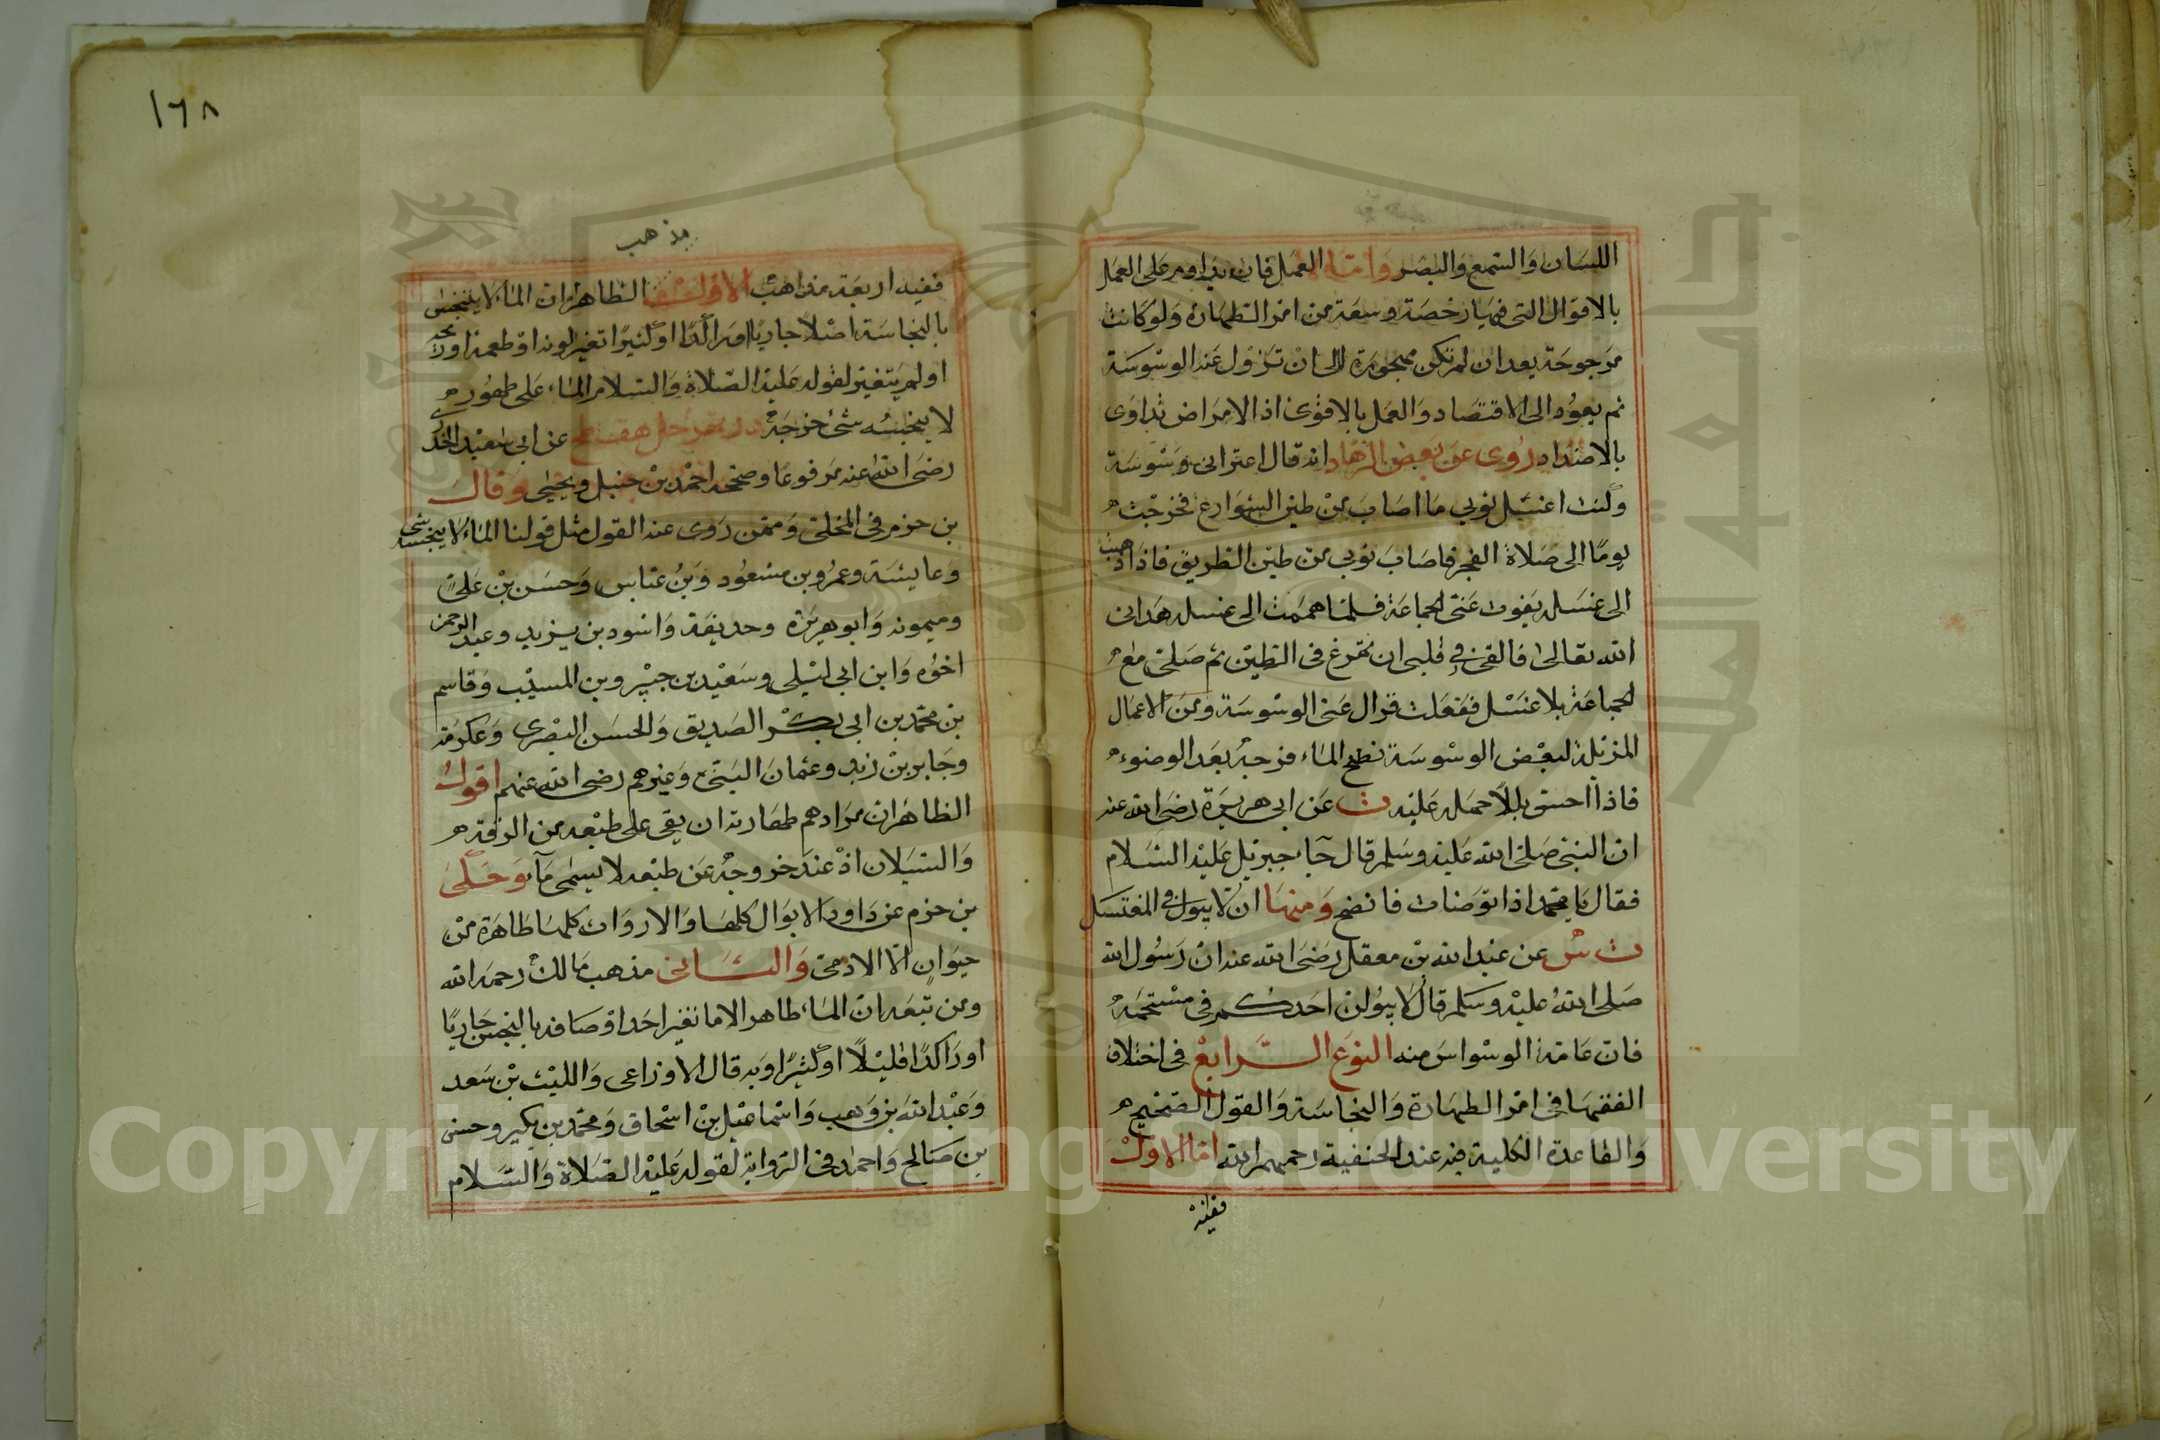 اللسان والسمع والبصر واما العمل فان يداوم على العمل
بالاقوال التى فيها رخصة وسعة من امر الطهارة ولو كانت
مرجوحة بعد ان لم تكن مهجورة الى ان تزول عند الوسوسة
ثم يعود الى الاقتصاد والعمل بالاقوى اذ الامراض تداوى
بالاضداد روى عن بعض الزهاد انه قال اعترانى وسوسة
وكنت اغسل ثوبى ما اصاب من طين الشوارع فخرجت
يوما الى صلاة الفجر فاصاب ثوبى من طين الطريق فاذا ذهبت
الى غسله يفوت عنى الجماعة فلما هممت الى غسله هدانى
الله تعالى فالقى فى قلبى ان تمرغ فى الطين ثم صلى مع
الجماعة بلا غسل ففعلت فزال عنى الوسوسة ومن الاعمال
المزيلة لبعض الوسوسة نضح الماء فرجه بعد الوضوء
فاذا احس بللا حمله عليه ت عن ابى هريرة رضى الله عنه
ان النبى صلى الله عليه وسلم قال جاء جبريل عليه السلام
فقال يا محمد اذا توضات فانضح ومنها ان لا يبول فى المغتسل
ت س عن عبد الله بن معقل رضى الله عنه ان رسول الله
صلى الله عليه وسلم قال لا يبولن احدكم فى مستحمه
فان عامة الوسواس منه النوع الرابع فى اختلاف
الفقهاء فى امر الطهارة والنجاسة والقول الصحيح
والقاعدة الكلية فيه عند الحنفية رحمهم الله اما الاول
ففيه
١٦٨
مذهب
ففيه اربعة مذاهب الاول الظاهر ان الماء لا يتنجس
بالنجاسة اصلا جاريا او راكدا او كثيرا تغير لونه او طعمه او ريحه
او لم يتغير لقوله عليه الصلاة والسلام الماء على طهوره
لا ينجسه شئ خرجه عن ابى سعيد الخدرى
رضى الله عنه مرفوعا وصححه احمد بن حنبل ويحيى وقال
بن حزم فى المحلى وممن روى عنه القول مثل قولنا الماء لا ينجسه شئ
وعايشة وعمرو بن مسعود وبن عباس وحسن بن على
وميمونه وابو هريرة وحذيفة واسود بن يزيد وعبد الرحمن
اخوه وابن ابى ليلى وسعيد بن جبير وبن المسيب وقاسم
بن محمد بن ابى بكر الصديق والحسن البصرى وعكرمة
وجابر بن زيد وعثمان البتى وغيرهم رضى الله عنهم اقول
الظاهر ان مرادهم طهارته ان بقى على طبعه من الرقة
والسيلان اذ عند خروجه عن طبعه لا يسمى ماء وحكى
بن حزم عن داود الابوال كلها والارواث كلها طاهرة من
حيوان الا الادمى والثانى مذهب مالك رحمه الله
ومن تبعه ان الماء طاهر الا ما تغير احد اوصافه بالنجس جاريا
او راكدا قليلا او كثيرا وبه قال الاوزاعى والليث بن سعد
وعبد الله بن وهب واسماعيل بن اسحاق ومحمد بن بكير وحسن
بن صالح واحمد فى الرواية لقوله عليه الصلاة والسلام
Copyright © King Saud University